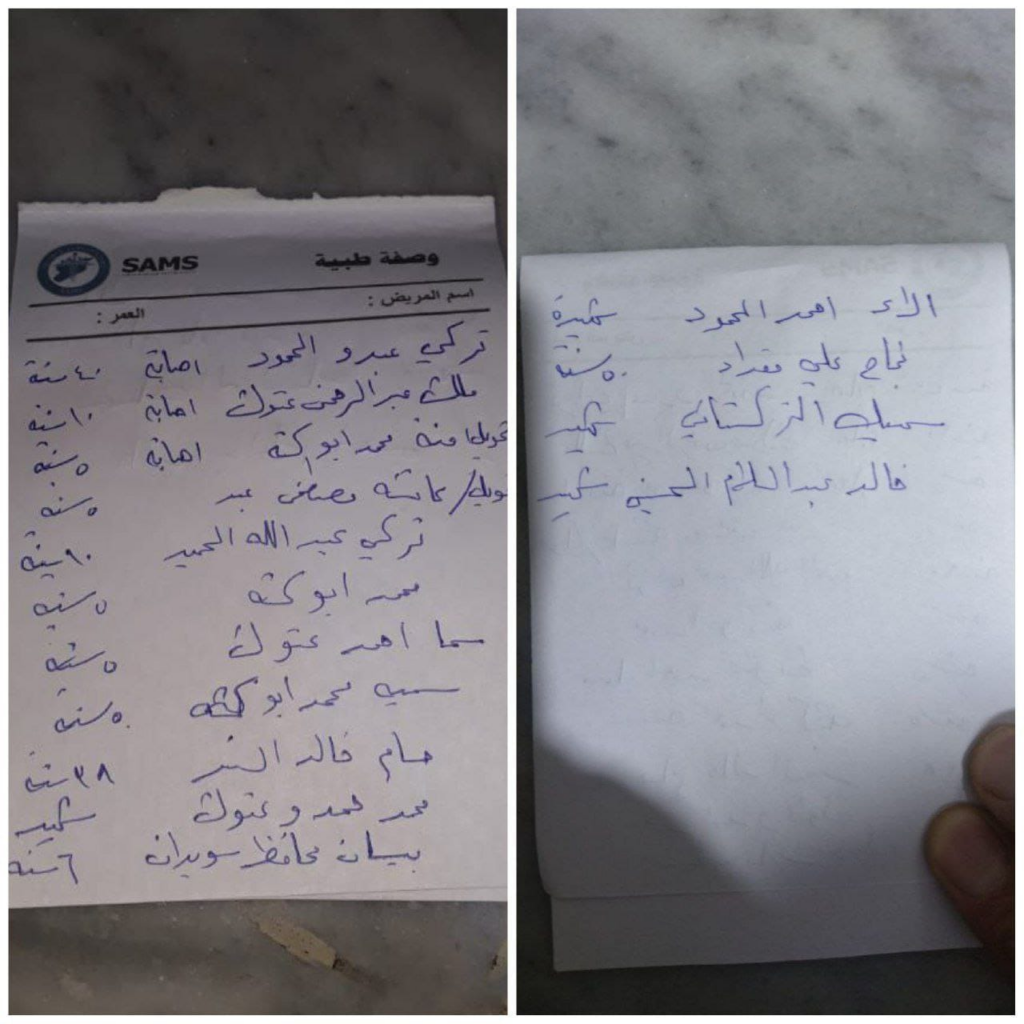 SAMS وصفة طبية
اسم المريض :
العمر :
تركي عبدو المحمود اصابة ٤٠ سنة
ملك عبد الرحمن عتوك اصابة ١٠ سنة
تحويل/ امنة محمد ابو كة اصابة ٥ سنة
تحويل/ عائشة مصطفى عبد ٥ سنه
تركي عبد الله الحميد ٦٠ سنة
محمد ابو كة ٥ سنه
سما احمد عتوك ٥ سنة
سميه محمد ابو ٥٠ سنه
حسام خالد ٣٨ سنة
محمد عتوك شهيد
بيسان محافظ سويدان ٦ سنه
الاء احمد المحمود شهيدة
نجاح علي مقداد ٥٠ سنة
التركستاني شهيد
خالد عبد السلام شهيد